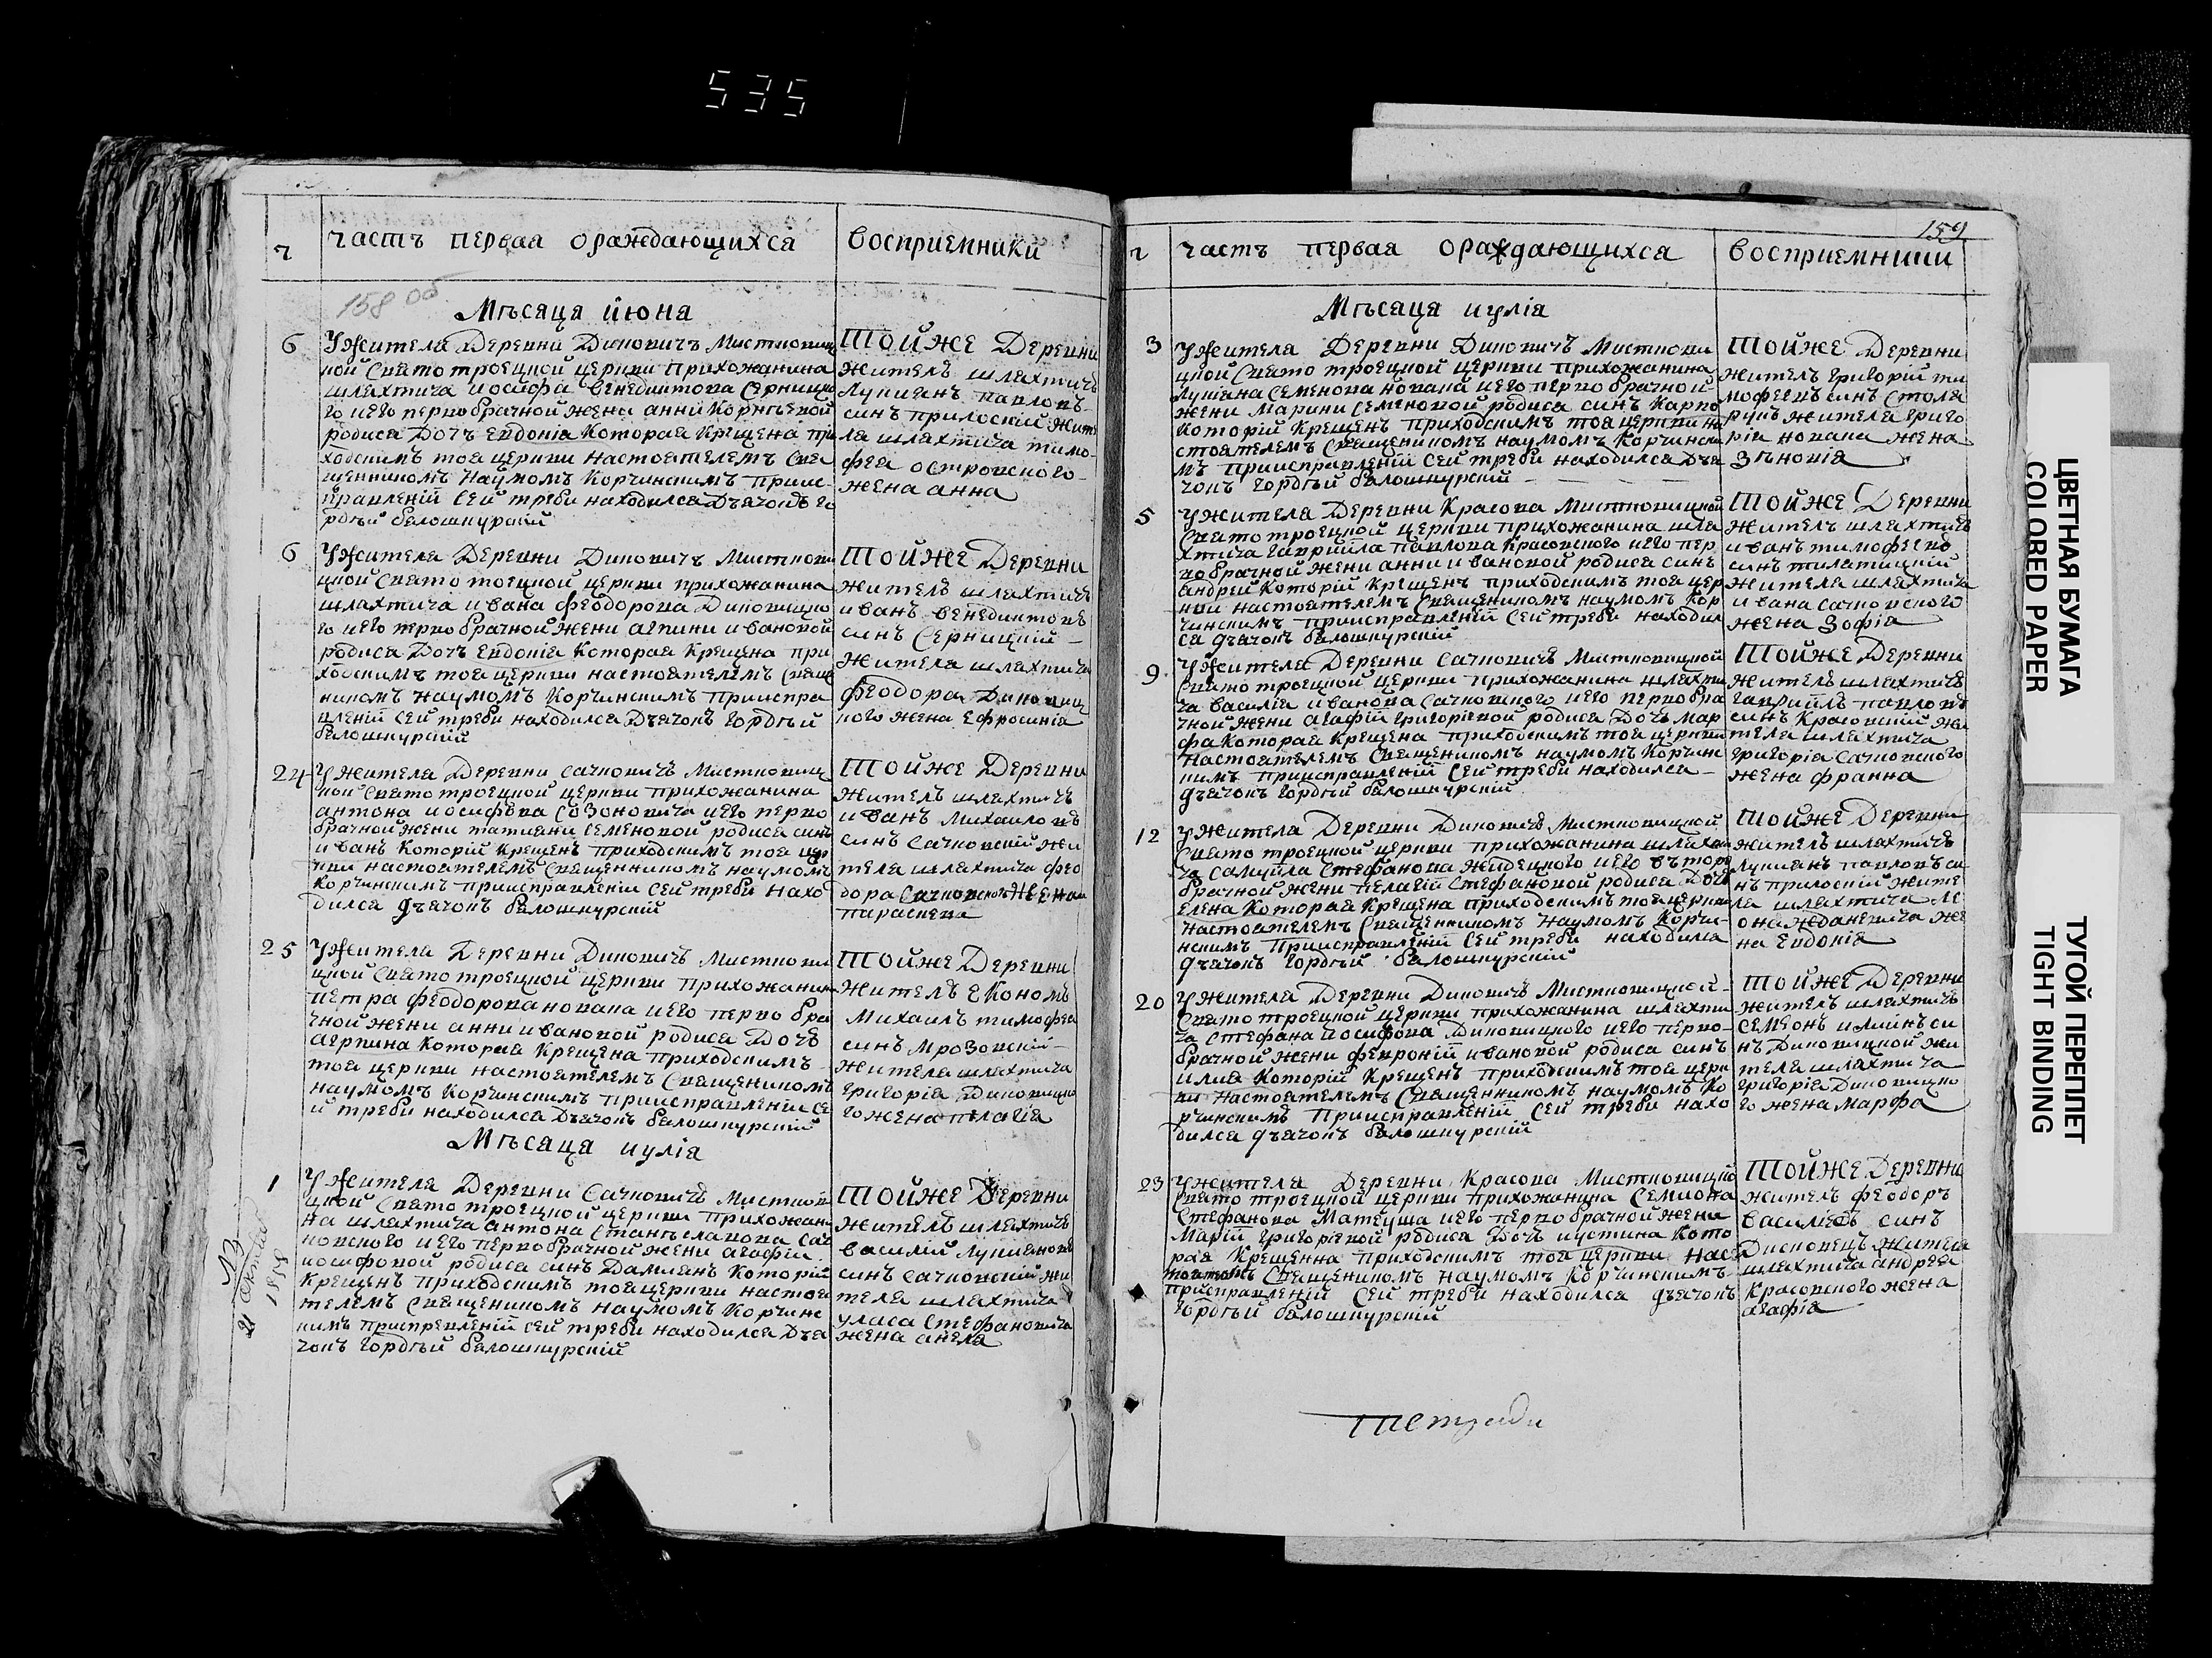 535
ч
часть первая ораждающихся
восприемники
158 об
Мѣсаца июна
6
Ужителя Деревни Диковичъ Мистковиц
кой Свято троецкой церкви прихожанина
шляхтича иосифа венедиктова Серницко
го иего первобрачной жени анни Корнѣевой
родися Дочъ Евдокіа Которая Крещена при
ходскимъ тоя церкви настоятелемъ Свя
щенникомъ Наумомъ Корчинскимъ приис
правленій Сей треби находился Дъячокъ го
рдѣй балошкурскій
Тойже Деревни
жителъ шляхтичъ
Лукиянъ павловъ
синъ прилоскій жите
ля шляхтича тимо
фея островского
жена анна
6
Ужителя Деревни Диковичъ Мисткови
цкой Свято тоецкой церкви прихожанина
шляхтича ивана феодорова Диковицко
го иего первобрачной жени агпини ивановой
родися Дочъ Евдокіа Которая Крещена при
ходскимъ тоя церкви настоятелемъ Свяще
никомъ Наумомъ Корчинскимъ прииспра
вленій Сей треби находился Дъячокъ гордѣй
балошкурскій
Тойже Деревни
жителъ шляхтичъ
иванъ венедиктовъ
синъ Серницкій
жителя шляхтича
феодора Диковиц
кого жена Ефросинія
24
Ужителя Деревни Сачковичъ Мистковиц
кой Свято троецкой церкви прихожанина
антона иосифова Созоновича иего перво
брачной жени татияни Семеновой родися синъ
иванъ Которій Крещенъ приходскимъ тоя цер
кви настоятелемъ Священникомъ наумомъ
Корчинскимъ приисправленіи Сей треби нахо
дился дъячокъ балошкурскій
Тойже Деревни
жителъ шляхтичъ
иванъ Михаиловъ
синъ Сачковскій жи
теля шляхтича фео
дора Сачковского жена
параскева
25
Ужителя Деревни Диковичъ Мисткови
цкой Свято троецкой церкви прихожанин
петра феодорова новака иего перво бра
чной жени анни ивановой родися Дочъ
агрпина Которая Крещена приходскимъ
тоя церкви настоятелемъ Священикомъ
наумомъ Корчинскимъ приисправленіи Се
й треби находился Дъячокъ балошкурскій
Тойже Деревни
жителъ Економъ
Михаилъ тимофея
синъ Мрозовскій
жителя шляхтича
григорія Диковицко
го жена пелагея
Мѣсаца иуліа
1
Ужителя Деревни Сачковичъ Мисткови
цкой Свято троецкой церкви прихожан
на шляхтича антона Станиславова Сач
ковского иего первобрачной жени агафіи
иосифовой родися синъ Дамианъ Которій
Крещенъ приходскимъ тоя церкви настоя
телемъ Священикомъ наумомъ Корчинс
кимъ приспревленій сей треби находился Дъя
чокъ гордѣй балошкурскій
Тойже Деревни
жителъ шляхтичъ
василій Лукиановъ
синъ Сачковскій жи
теля шляхтича
уласа Стефановича
жена анеля
13
21 октября
1858
159
ч
часть первая ораждающихся
восприемники
Мѣсаца иуліа
3
Ужителя Деревни Диковичъ Мисткови
цкой Свято троецкой церкви прихожанина
Лукяна Семенова новака иего перво брачной
жени Марини Семеновой родися синъ Карпо
Которій Крещенъ приходскимъ тоя церкви на
стоятелемъ Священикомъ наумомъ Корчински
мъ приисправленій Сей треби находился Дъя
чокъ гордѣй балошкурскій
Тойже Деревни
жителъ григорій ти
мофеевъ синъ Столя
рукъ жителя григо
рія новака жена
Зѣновія
5
Ужителя Деревни Красова Мистковицкой
Свято троецкой церкви прихожанина шля
хтича гавриила павлова Красовского иего пер
во брачной жени анни ивановой родися синъ
андрей Которій Крещенъ приходскимъ тоя цер
кви настоятелемъ Священикомъ наумомъ Кор
чинскимъ приисправленій Сей треби находил
ся дъячокъ балошкурскій
Тойже Деревни
жителъ шляхтичъ
иванъ тимофеевъ
синъ тилятицкій
жителя шляхтича
ивана Сачковского
жена Зофія
9
Ужителя Деревни Сачковичъ Мистковицкой
Свято троецкой церкви прихожанина шляхти
ча василія иванова Сачковского иего первобра
чной жени агафіи григоріевой родися Дочъ Мар
фа Которая Крещена приходскимъ тоя церкви
настоятелемъ Священикомъ наумомъ Корчинс
кимъ приисправленій Сей треби находился
дъячокъ гордѣй балошкурскій
Тойже Деревни
жителъ шляхтичъ
гавриилъ павловъ
синъ Красовскій жи
теля шляхтича
григорія Сачковского
жена франка
12
Ужителя Деревни Диковичъ Мистковицкой
Свято троецкой церкви прихожанина шляхти
ча Самуила Стефанова Жидецкого иего въторо
брачной жени пелагеи Стефановой родися Дочъ
Елена Которая Крещена приходскимъ тоя церкви
настоятелемъ Священникомъ Наумомъ Корчи
нскимъ приисправленій Сей треби находился
дъячокъ гордѣй балошкурскій
Тойже Деревни
жителъ шляхтичъ
Лукиянъ павловъ си
нъ прилоскій жите
ля шляхтича Ле
она Жданевича же
на Евдокія
20
Ужителя Деревни Диковичъ Мистковицкой
Свято троецкой церкви прихожанина шляхти
ча Стефана иосифова Диковицкого иего перво
брачной жени февроніи ивановой родися синъ
илия Которій Крещенъ приходскимъ тоя церк
ви настоятелемъ Священникомъ наумомъ Ко
рчинскимъ приисправленій Сей треби нахо
дился дъячокъ балошкурскій
Тойже Деревни
жителъ шляхтичъ
Семеонъ илиинъ си
нъ Диковицкой жи
теля шляхтича
григорія Диковицко
го жена Марфа
23
Ужителя Деревни Красова Мистковицкой
Свято троецкой церкви прихожанина Семиона
Стефанова Матеуша иего перво брачной жени
Маріи григоріевой родися Дочъ иустина Кото
рая Крещенна приходскимъ тоя церкви нас
тоятелемъ Священикомъ наумомъ Корчинскимъ
присправленій Сей треби находился дъячокъ
гордѣй балошкурскій
Тойже Деревни
жителъ феодоръ
василіевъ синъ
Дисковецъ жителя
шляхтича андрея
Красовского жена
агафія
ЦВЕТНАЯ БУМАГА
COLORED PAPER
ТУГОЙ ПЕРЕПЛЕТ
TIGHT BINDING